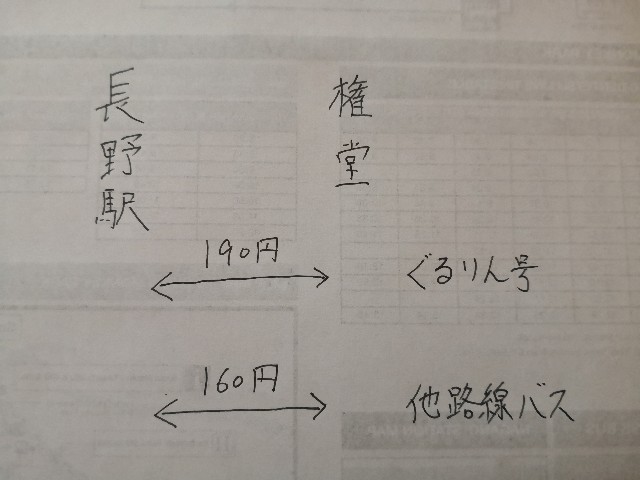 長野駅
権堂
190円
ぐるりん号
160円
他路線バス